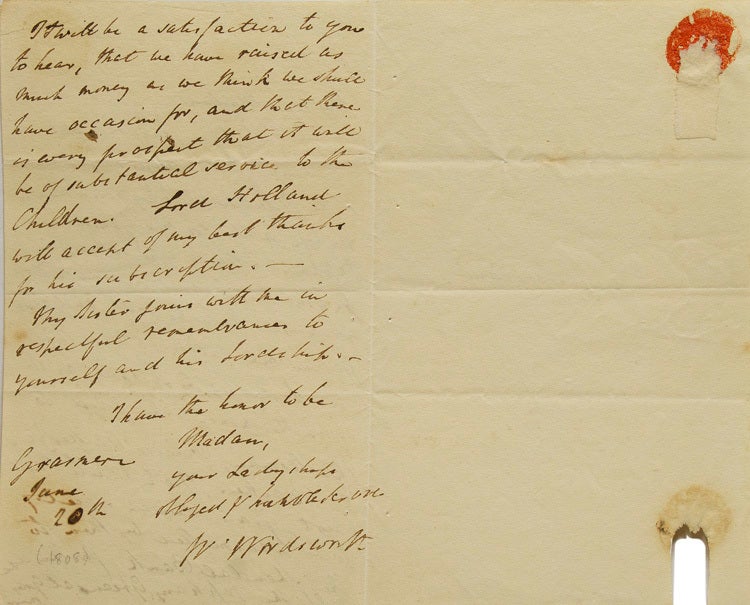 It will be a satisfaction to you
to hear, that we have raised as
much money as we think we shall
have occasion for, and that there
is every prospect that it will
be of substantial service to the
Children. Lord Holland
will accept of my best thanks
for his subscription. —
My Sister joins with me in
respectful remembrances to
yourself and his Lordship. —
I have the honor to be
Madam,
your Ladyships
obliged & humble
Wm Wordsworth
Grasmere
June
20th